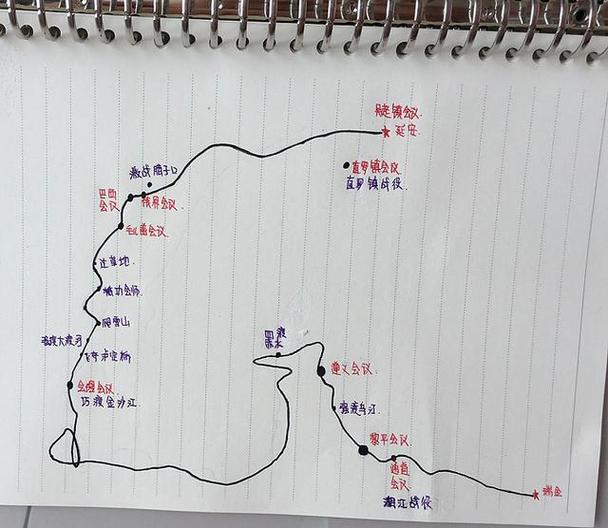 延安
直罗镇会议
直罗镇战役
激战腊子口
巴西
会议
俄界会议
毛儿盖会议
过草地
懋功会师
爬雪山
强渡大渡河
飞夺泸定桥
会理会议
巧渡金沙江
四渡
赤水
遵义会议
强渡乌江
黎平会议
通道
会议
湘江战役
瑞金